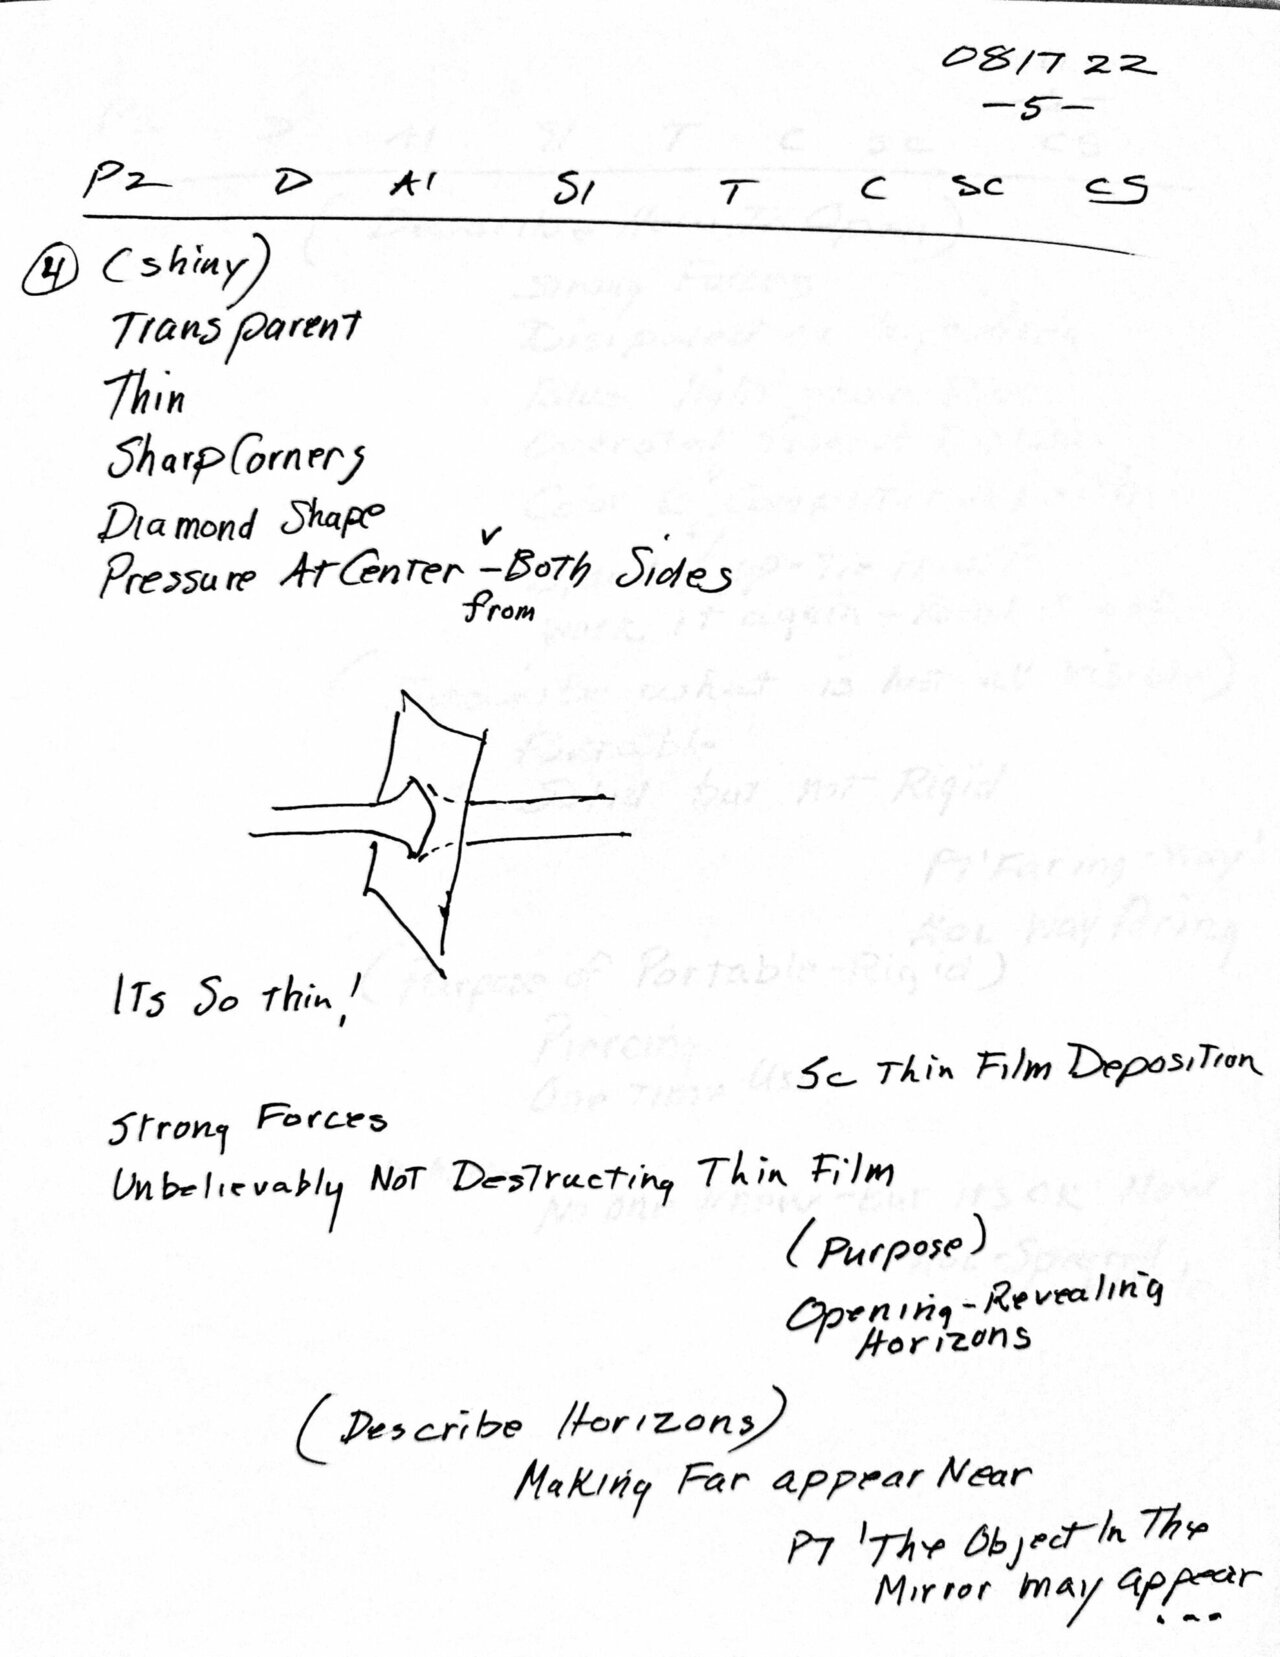 081722
-5-
P2 D A1 S1 T C SC CS
4 (shiny)
Transparent
Thin
Sharp Corners
Diamond Shape
v
Pressure At Center - Both Sides
from
ITs So thin!
Sc Thin Film Deposition
Strong Forces
Unbelievably NOT Destructing Thin Film
(Purpose)
Opening-Revealing
Horizons
(Describe Horizons)
Making Far appear Near
P7 'The Object In The
Mirror may appear
...